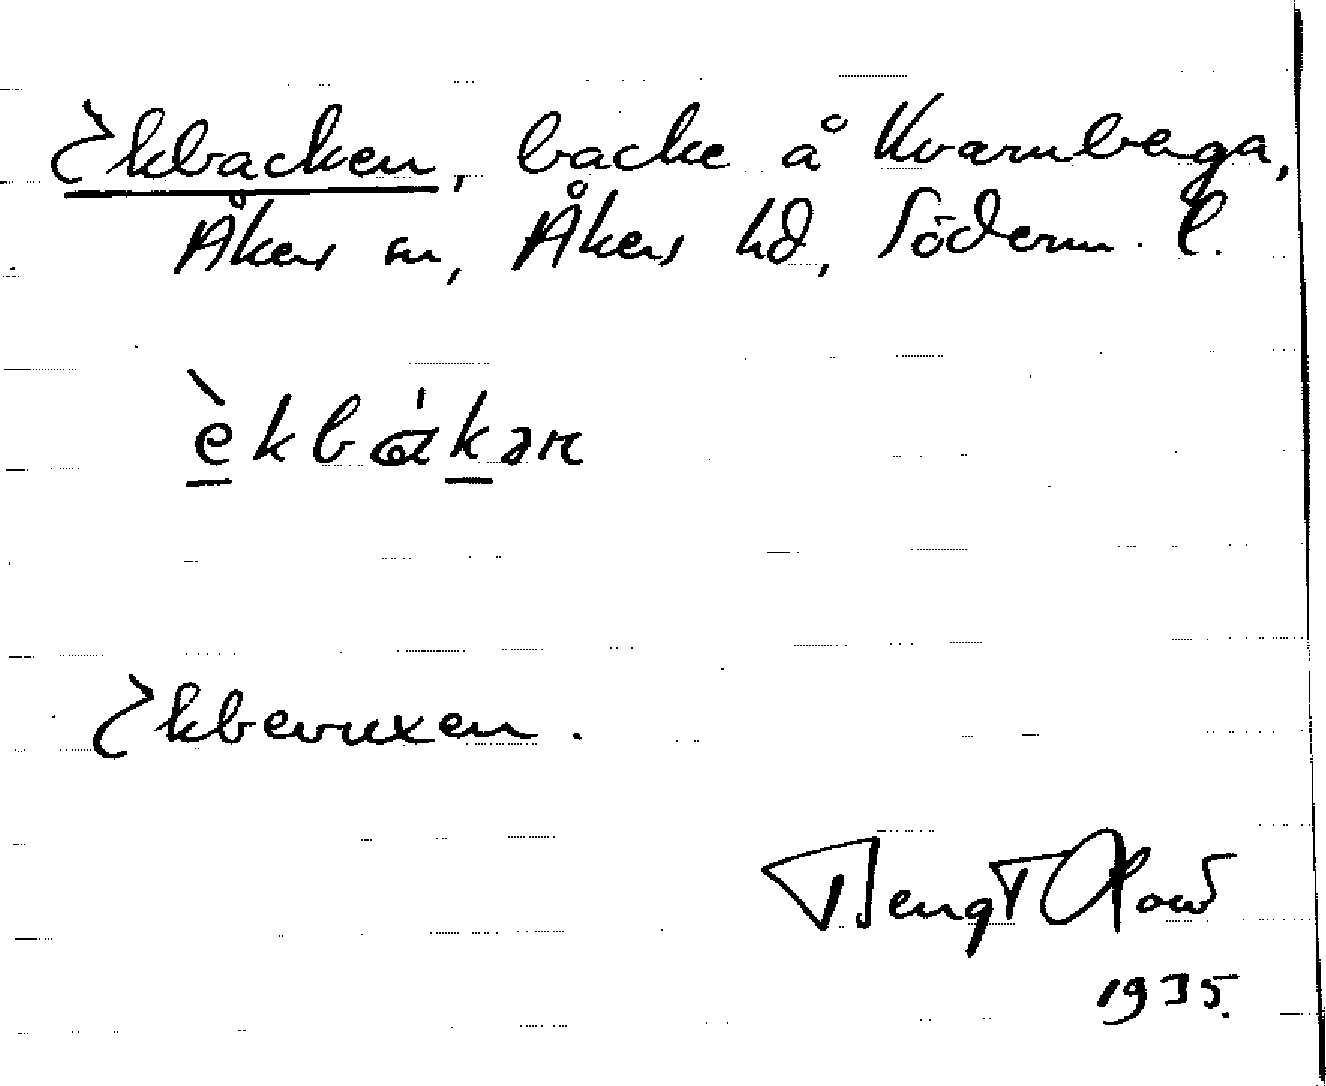 Ekbacken, backe å Kvarnberga,
Åkers sn, Åkers hd, Söderm. l.
è̱kbɑ́ḵən
Ekbevuxen.
Bengt
1935.